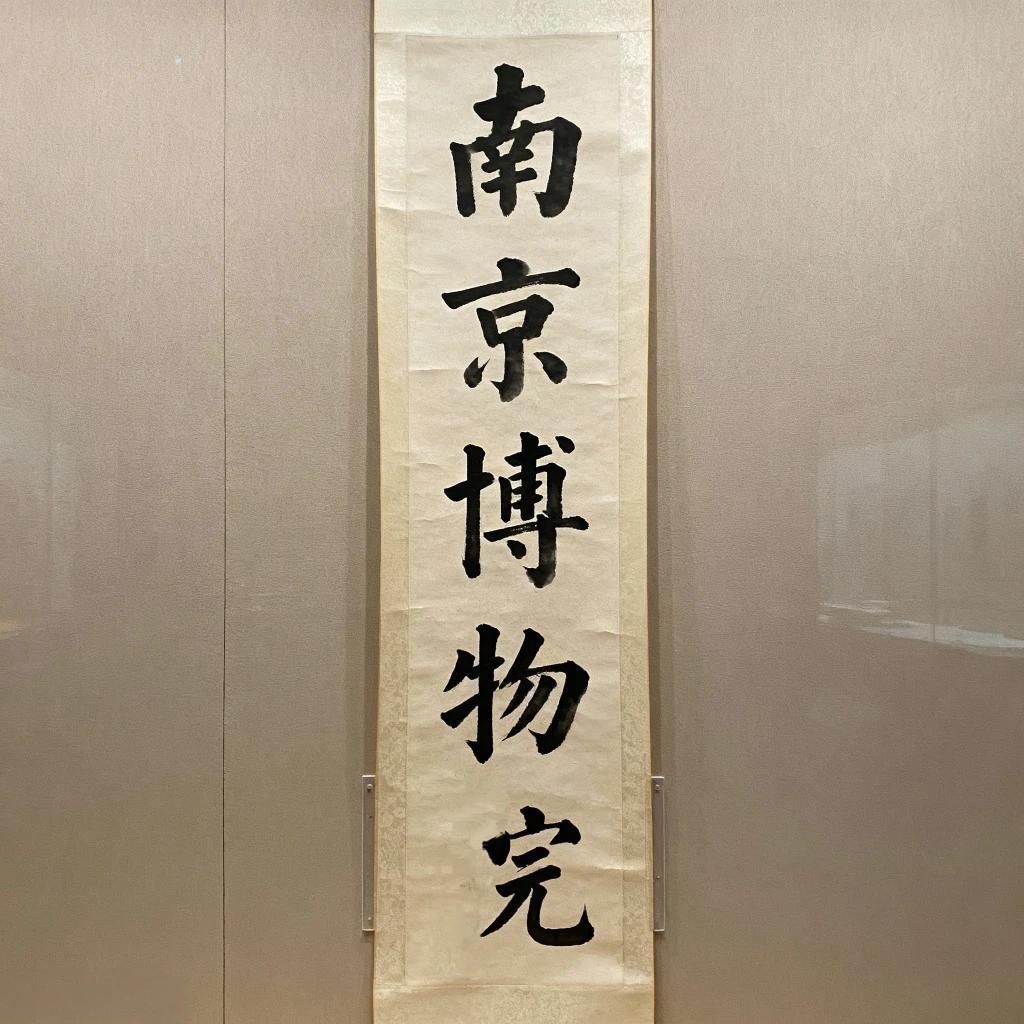 南京博物完